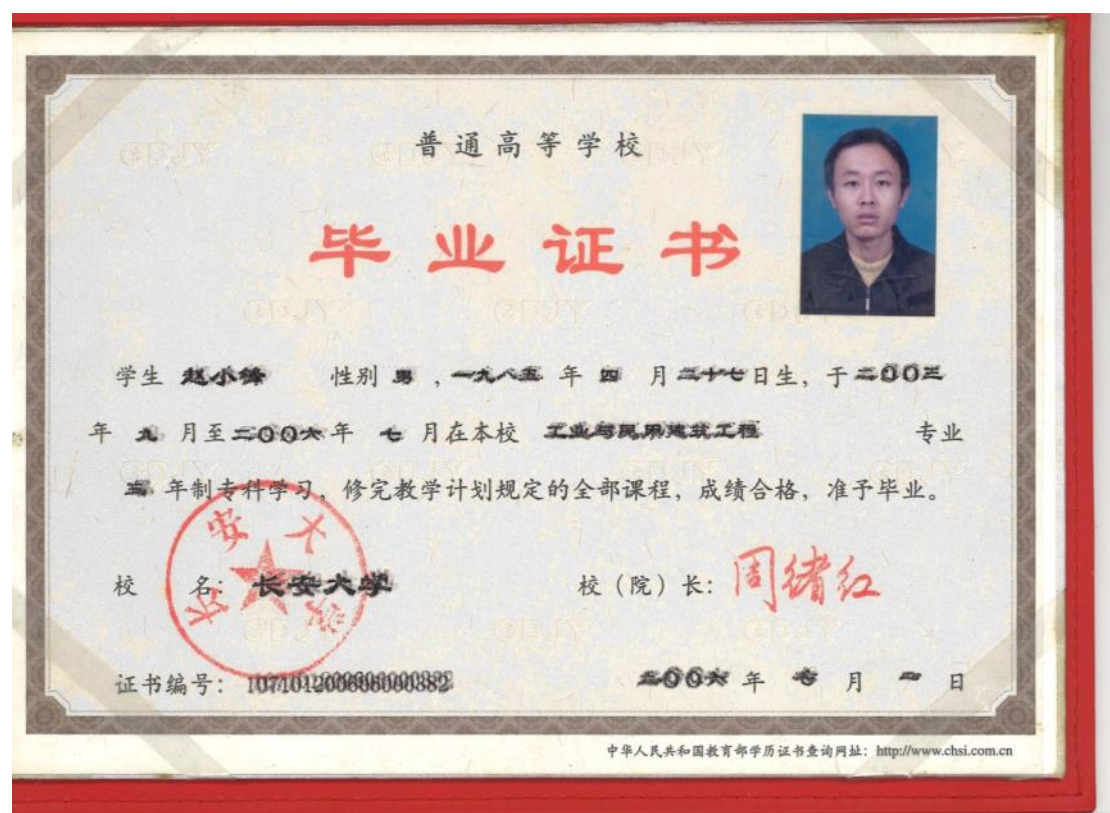 普通高等学校
毕业证书
学生 赵小锋 性别 男 , 一九八五 年 四 月 二十七日生, 于二〇〇三
年 九 月至二〇〇六年 七 月在本校 工业与民用建筑工程 专业
三 年制专科学习, 修完教学计划规定的全部课程, 成绩合格, 准予毕业。
校 名: 长安大学 校(院)长: 周绪红
长安大学
证书编号: 二〇〇六 年 七 月 一 日
中华人民共和国教育部学历证书查询网址: http://www.chsi.com.cn